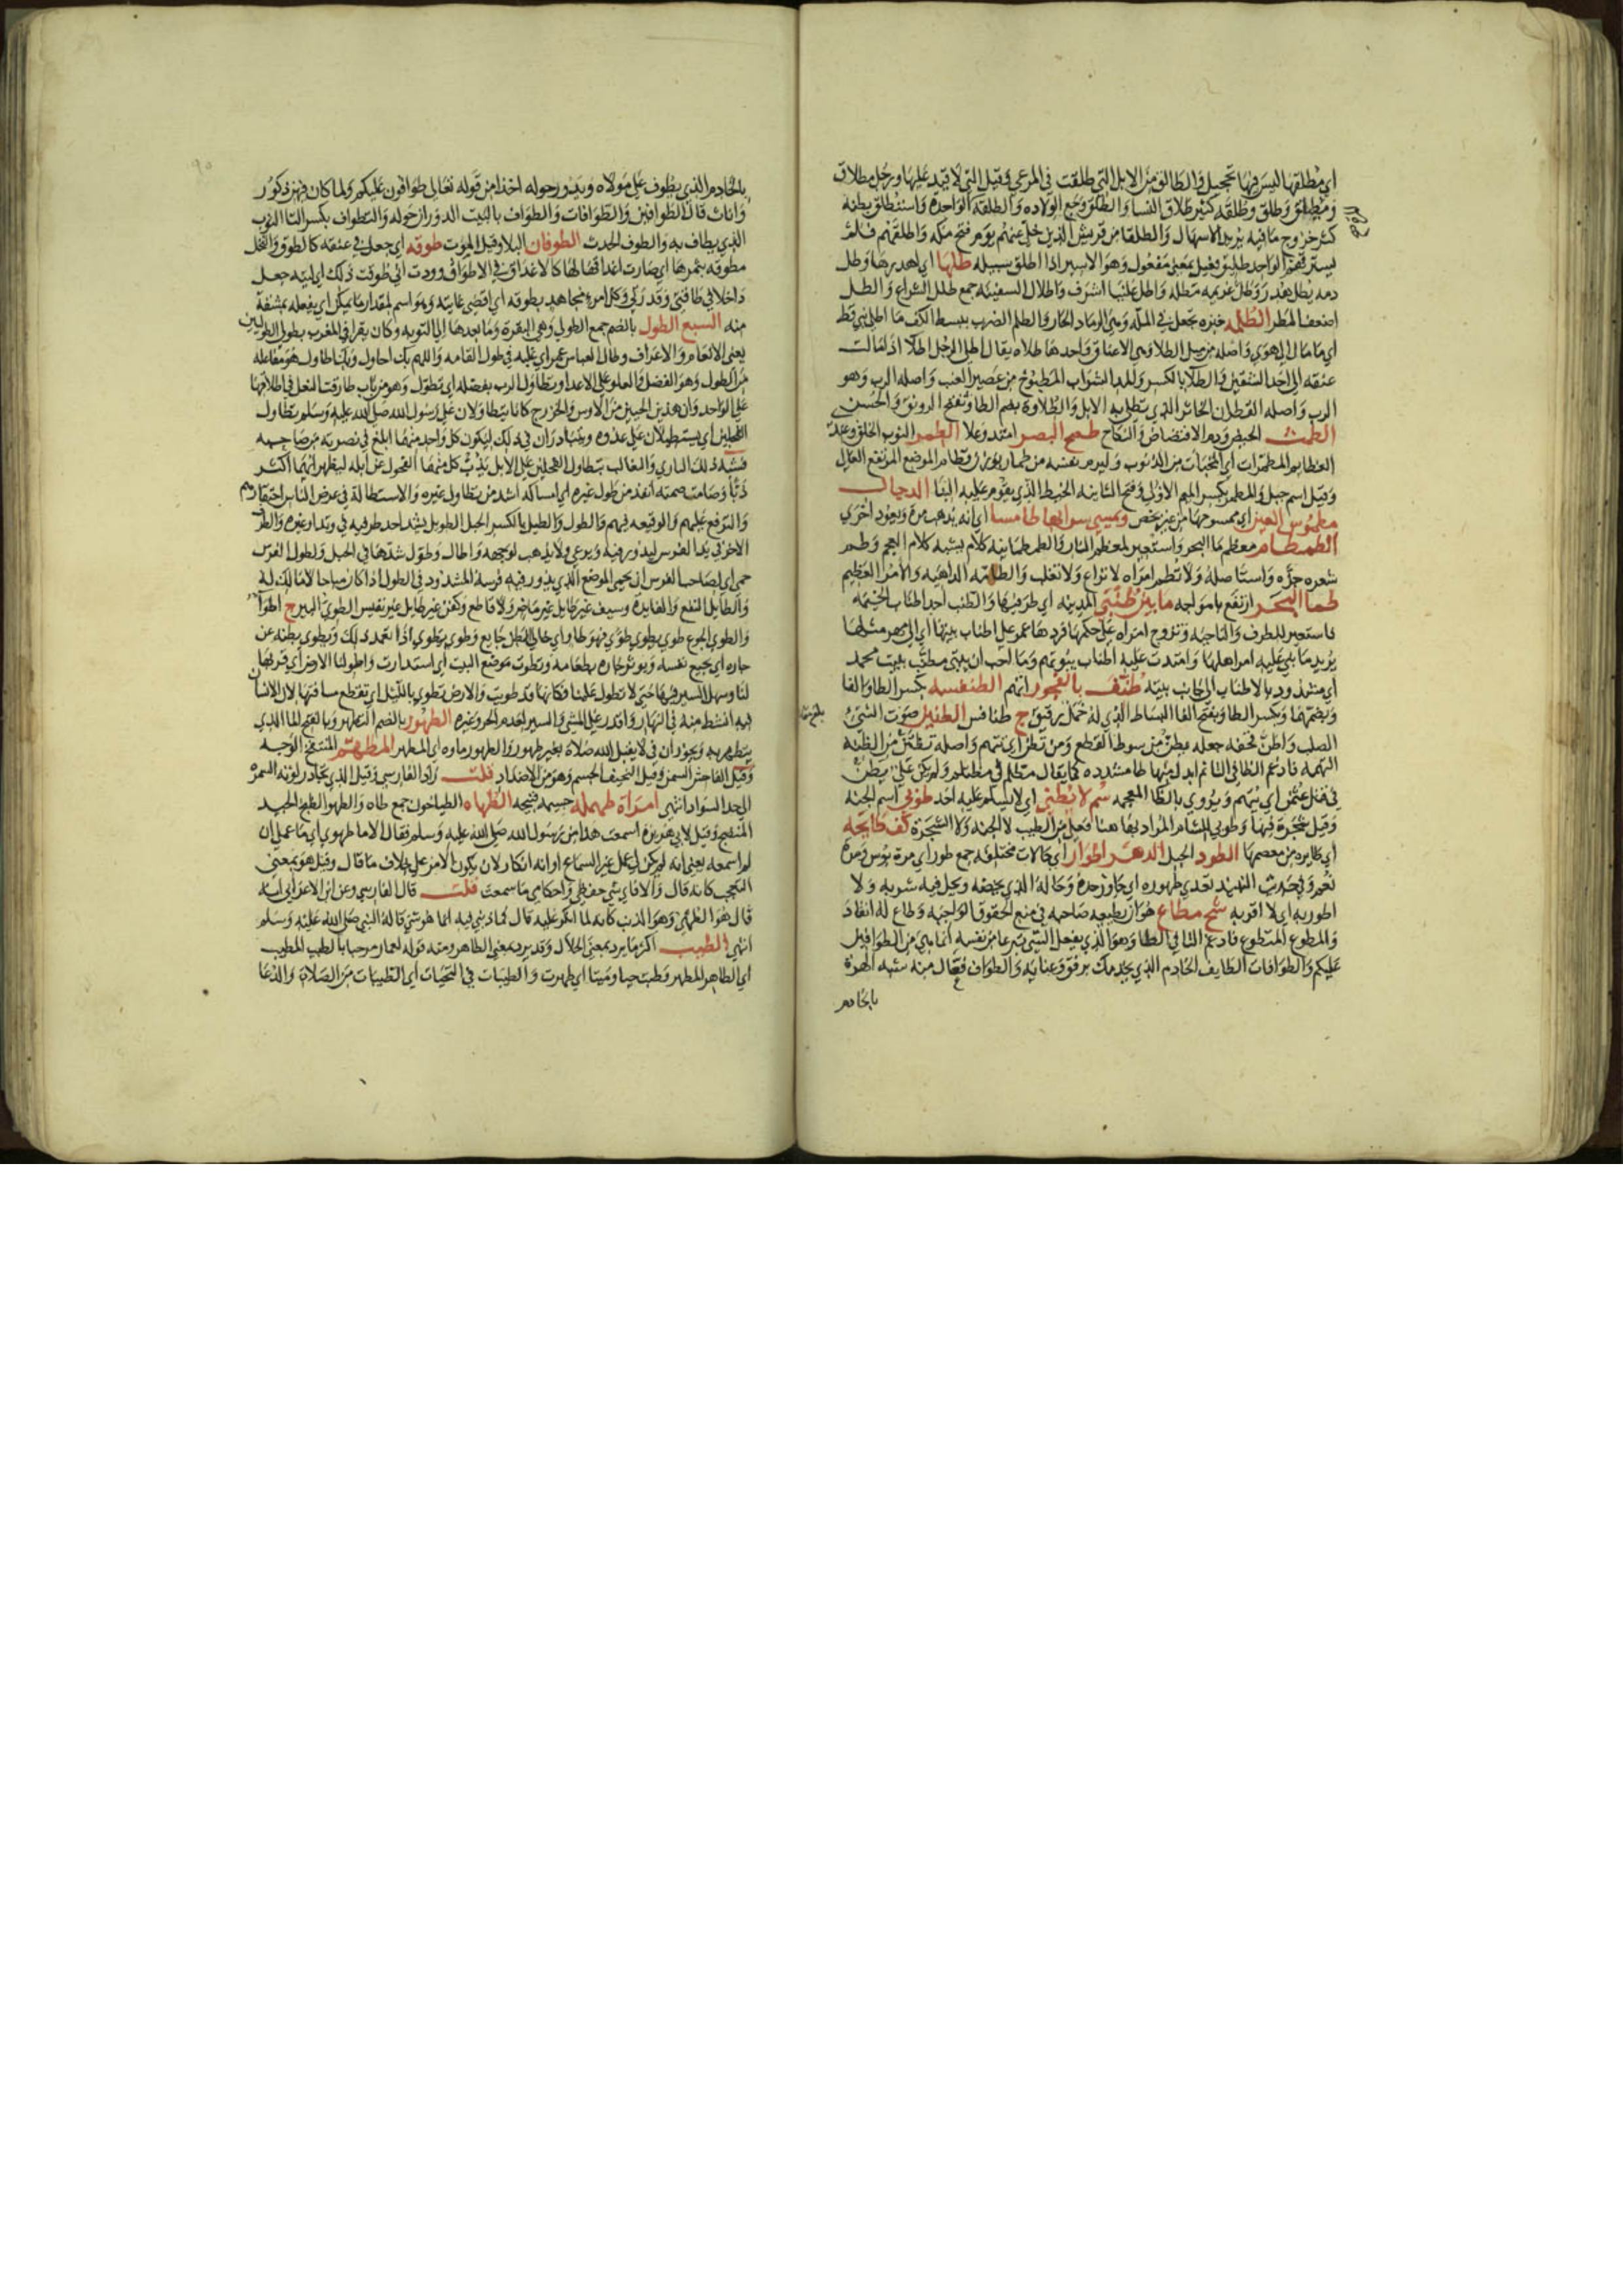 اي مطلقها ليس فيها تحجيل والطالق من الابل التي طلقت في المرعي وقيل التي لا قيد عليها ورجل مطلاق
ومطليق وطلق وطلقه كثير طلاق النسا والطلق وجع الولاده والطلقة الواحدة واستطلق بطنه
كثر خروج ما فيه يريد الاسهال والطلقا من قريش الذين خلى عنهم يوم فتح مكه واطلقهم فلم
يسترقهم الواحد طليق فعيل بمعنى مفعول وهو الاسير اذا اطلق سبيله طلها اي اهدرها وطل
دمه يطل هدر وطل غريمه مطله واطل علينا اشرف واطلال السفينه جمع طلل الشراع والطل
اضعف المطر الطلمه خبزه تجعل في المله وهي الرماد الحار والطلم الضرب ببسط الكف ما اطلى نبي قط
اي ما مال الى هوي واصله من ميل الطلا وهي الاعناق واحدها طلاه يقال اطلى الرجل اطلا اذا مالت
عنقه الى احد الشقين والطلا بالكسر والمد الشراب المطبوخ من عصير العنب واصله الرب وهو
الرب واصله القطران الخاثر الذي تطلى به الابل والطلاوة بضم الطا وتفتح الرونق والحسن
الطمث الحيض ودم الافتضاض والنكاح طمح البصر امتد وعلا الطمر الثوب الخلق وعند
العظايم المطمرات اي المخبات من الذنوب وليرم نفسه من طمار بوزن قطام الموضع المرتفع العال
وقيل اسم جبل والمطمر بكسر الميم الاولى وفتح الثانيه الخيط الذي يقوم عليه البنا الدجال
مطموس العين اي ممسوحها من غير بخص ويمسي سرابها طامسا اي انه يذهب مرة ويعود اخرى
الطمطام معظم ما البحر واستعير لمعظم النار والطمطمانيه كلام يشبه كلام العجم وطم
شعره جزه واستاصله ولا تطم امراه لا تراع ولا تغلب والطامه الداهيه والامر العظيم
طما البحر ارتفع بامواجه ما بين طنبي المدينه اي طرفيها والطنب احد اطناب الخيمه
فاستعير للطرف والناحيه وتزوج امراه على حكمها فردها عمر على اطناب بيتها اي الى مهر مثلها
يريد ما بني عليه امر اهلها وامتدت عليه اطناب بيوتهم وما احب ان بيتي مطنب ببيت محمد
اي مشدود بالاطناب الى جانب بيته طنف بالفجور اتهم الطنفسه بكسر الطا والفا
وبضمهما وبكسر الطا وبفتح الفا البساط الذي له خمل رقيق ج طنافس الطنين صوت الشئ
الصلب واطن قحفه جعله يطن من سوطا القطع ومن تطن اي تتهم واصله تظتن من الظنه
التهمه فادغم الظا في التا ثم ابدل منها طا مشدده كما يقال مطلم في مظتلم ولم يكن علي يطن
في قتل عثمن اي يتهم ويروي بالظا المعجمه سم لا يطني اي لا يسلم عليه احد طوبى اسم الجنه
وقيل شجرة فيها وطوبى للشام المراد بها هنا فعلى من الطيب لا الجنه ولا الشجرة كف طايحه
اي طايره من معصمها الطود الجبل الدهر اطوار اي حالات مختلفه جمع طور اي مرة بوس ومرة
نعم وفي حديث النبيذ تعدي طوره اي جاوز حده وحاله الذي يخصه ويحل فيه شربه ولا
اطور به اي لا اقربه شح مطاع هو ان يطيعه صاحبه في منع الحقوق الواجبه وطاع له انقاد
والمطوع المتطوع فادغم التا في الطا وهو الذي يفعل الشي تبرعا من نفسه انما هي من الطوافين
عليكم والطوافات الطايف الخادم الذي يخدمك برفق وعنايه والطواف فعال منه شبه الهرة
بالخادم
بالخادم الذي يطوف على مولاه ويدور حوله اخذا من قوله تعالى طوافون عليكم ولما كان فيهن ذكور
واناث قال الطوافين والطوافات والطواف بالبيت الدوران حوله والتطواف بكسر التا الثوب
الذي يطاف به والطوف الحدث الطوفان البلا وقيل الموت طوقه اي جعل في عنقه كالطوق والنخل
مطوقه بثمرها اي صارت اعذاقها لها كالاغداق في الاطواق ووددت اني طوقت ذلك اي ليته جعل
داخلا في طاقتي وقدرتي وكل امرئ مجاهد بطوقه اي اقصى غايته وهو اسم لمقدار ما يمكن اي يفعله بمشقة
منه السبع الطول بالضم جمع الطولي وهي البقرة وما بعدها الى التوبه وكان يقرا في المغرب بطولي الطوليين
يعني الانعام والاعراف وطال العباس عمر اي غلبه في طول القامه واللهم بك احاول وبك اطاول هو مفاعله
من الطول وهو الفضل والعلو على الاعدا وتطاول الرب بفضله اي تطول وهو من باب طارقت النعل في اطلاقها
على الواحد وان هذين الحيين من الاوس والخزرج كانا يتطاولان على رسول الله صلى الله عليه وسلم تطاول
الفحلين اي يستطيلان على عدوه ويتباريان في ذلك ليكون كل واحد منهما ابلغ في نصرته من صاحبه
فشبه ذلك التباري والتغالب بتطاول الفحلين على الابل يذب كل منهما الفحول عن ابله ليظهر ايهما اكثر
ذبا وصامت صمته انفذ من طول غيره اي امساكه اشد من تطاول غيره والاستطالة في عرض الناس احتقارهم
والترفع عليهم والوقيعه فيهم والطول والطيل بالكسر الحبل الطويل يشد احد طرفيه في وتد او غيره والطر
الاخر في يد الفرس ليدور فيه ويرعي ولا يذهب لوجهه واطال وطول شدها في الحبل ولطول الفرس
حمى اي لصاحب الفرس ان يحمي الموضع الذي يدور فيه فرسه المشدود في الطول اذا كان مباحا لا مالك له
والطايل النفع والفايدة وسيف غير طايل غير ماض ولا قاطع وكفن غير طايل غير نفيس الطوي البير ج اطوا
والطوي الجوع طوي يطوي طوي فهو طاو اي خالي البطن جايع وطوي يطوي اذا تعمد ذلك ويطوي بطنه عن
جاره اي يجيع نفسه ويوثر جاره بطعامه وتطوت موضع البيت اي استدارت واطو لنا الارض اي قربها
لنا وسهل السير فيها حتى لا تطول علينا فكانها قد طويت والارض تطوي بالليل اي تقطع مسافتها لان الانسان
فيه انشط منه في النهار واقدر على المشي والسير لعدم الحر وغيره الطهور بالضم التطهر وبالفتح الما الذي
يتطهر به ويجوز ان في لا يقبل الله صلاة بغير طهور والطهور ماوه اي المطهر المطهم المنتفخ الوجه
وقيل الفاحش السمن وقيل النحيف الجسم وهو من الاضداد قلت زاد الفارسي وقيل الذي يجاوز لونه السمرة
الى حد السواد انتهى امراة طهمله جسيمه قبيحه الطهاه الطباخون جمع طاه والطهو الطبخ الجيد
المنضج وقيل لابي هريرة اسمعت هذا من رسول الله صلى الله عليه وسلم فقال الا ما طهوي اي ما عملي ان
لم اسمعه يعني انه لم يكن لي عمل غير السماع او انه انكار لان يكون الامر على خلاف ما قال وقيل هو بمعنى
التعجب كانه قال والا فاي شي حفظي واحكامي ما سمعت قلت قال الفارسي وعن ابن الاعرابي انه
قال هو الطهي وهو الذنب كانه لما انكر عليه قال فما ذنبي فيه انما هو شي قاله النبي صلى الله عليه وسلم
انتهى الطيب اكثر ما يرد بمعنى الحلال وقد يرد بمعنى الطاهر ومنه قوله لعمار مرحبا بالطيب المطيب
اي الطاهر المطهر وطبت حيا وميتا اي طهرت والطيبات في التحيات اي الطيبات من الصلاة والدعا